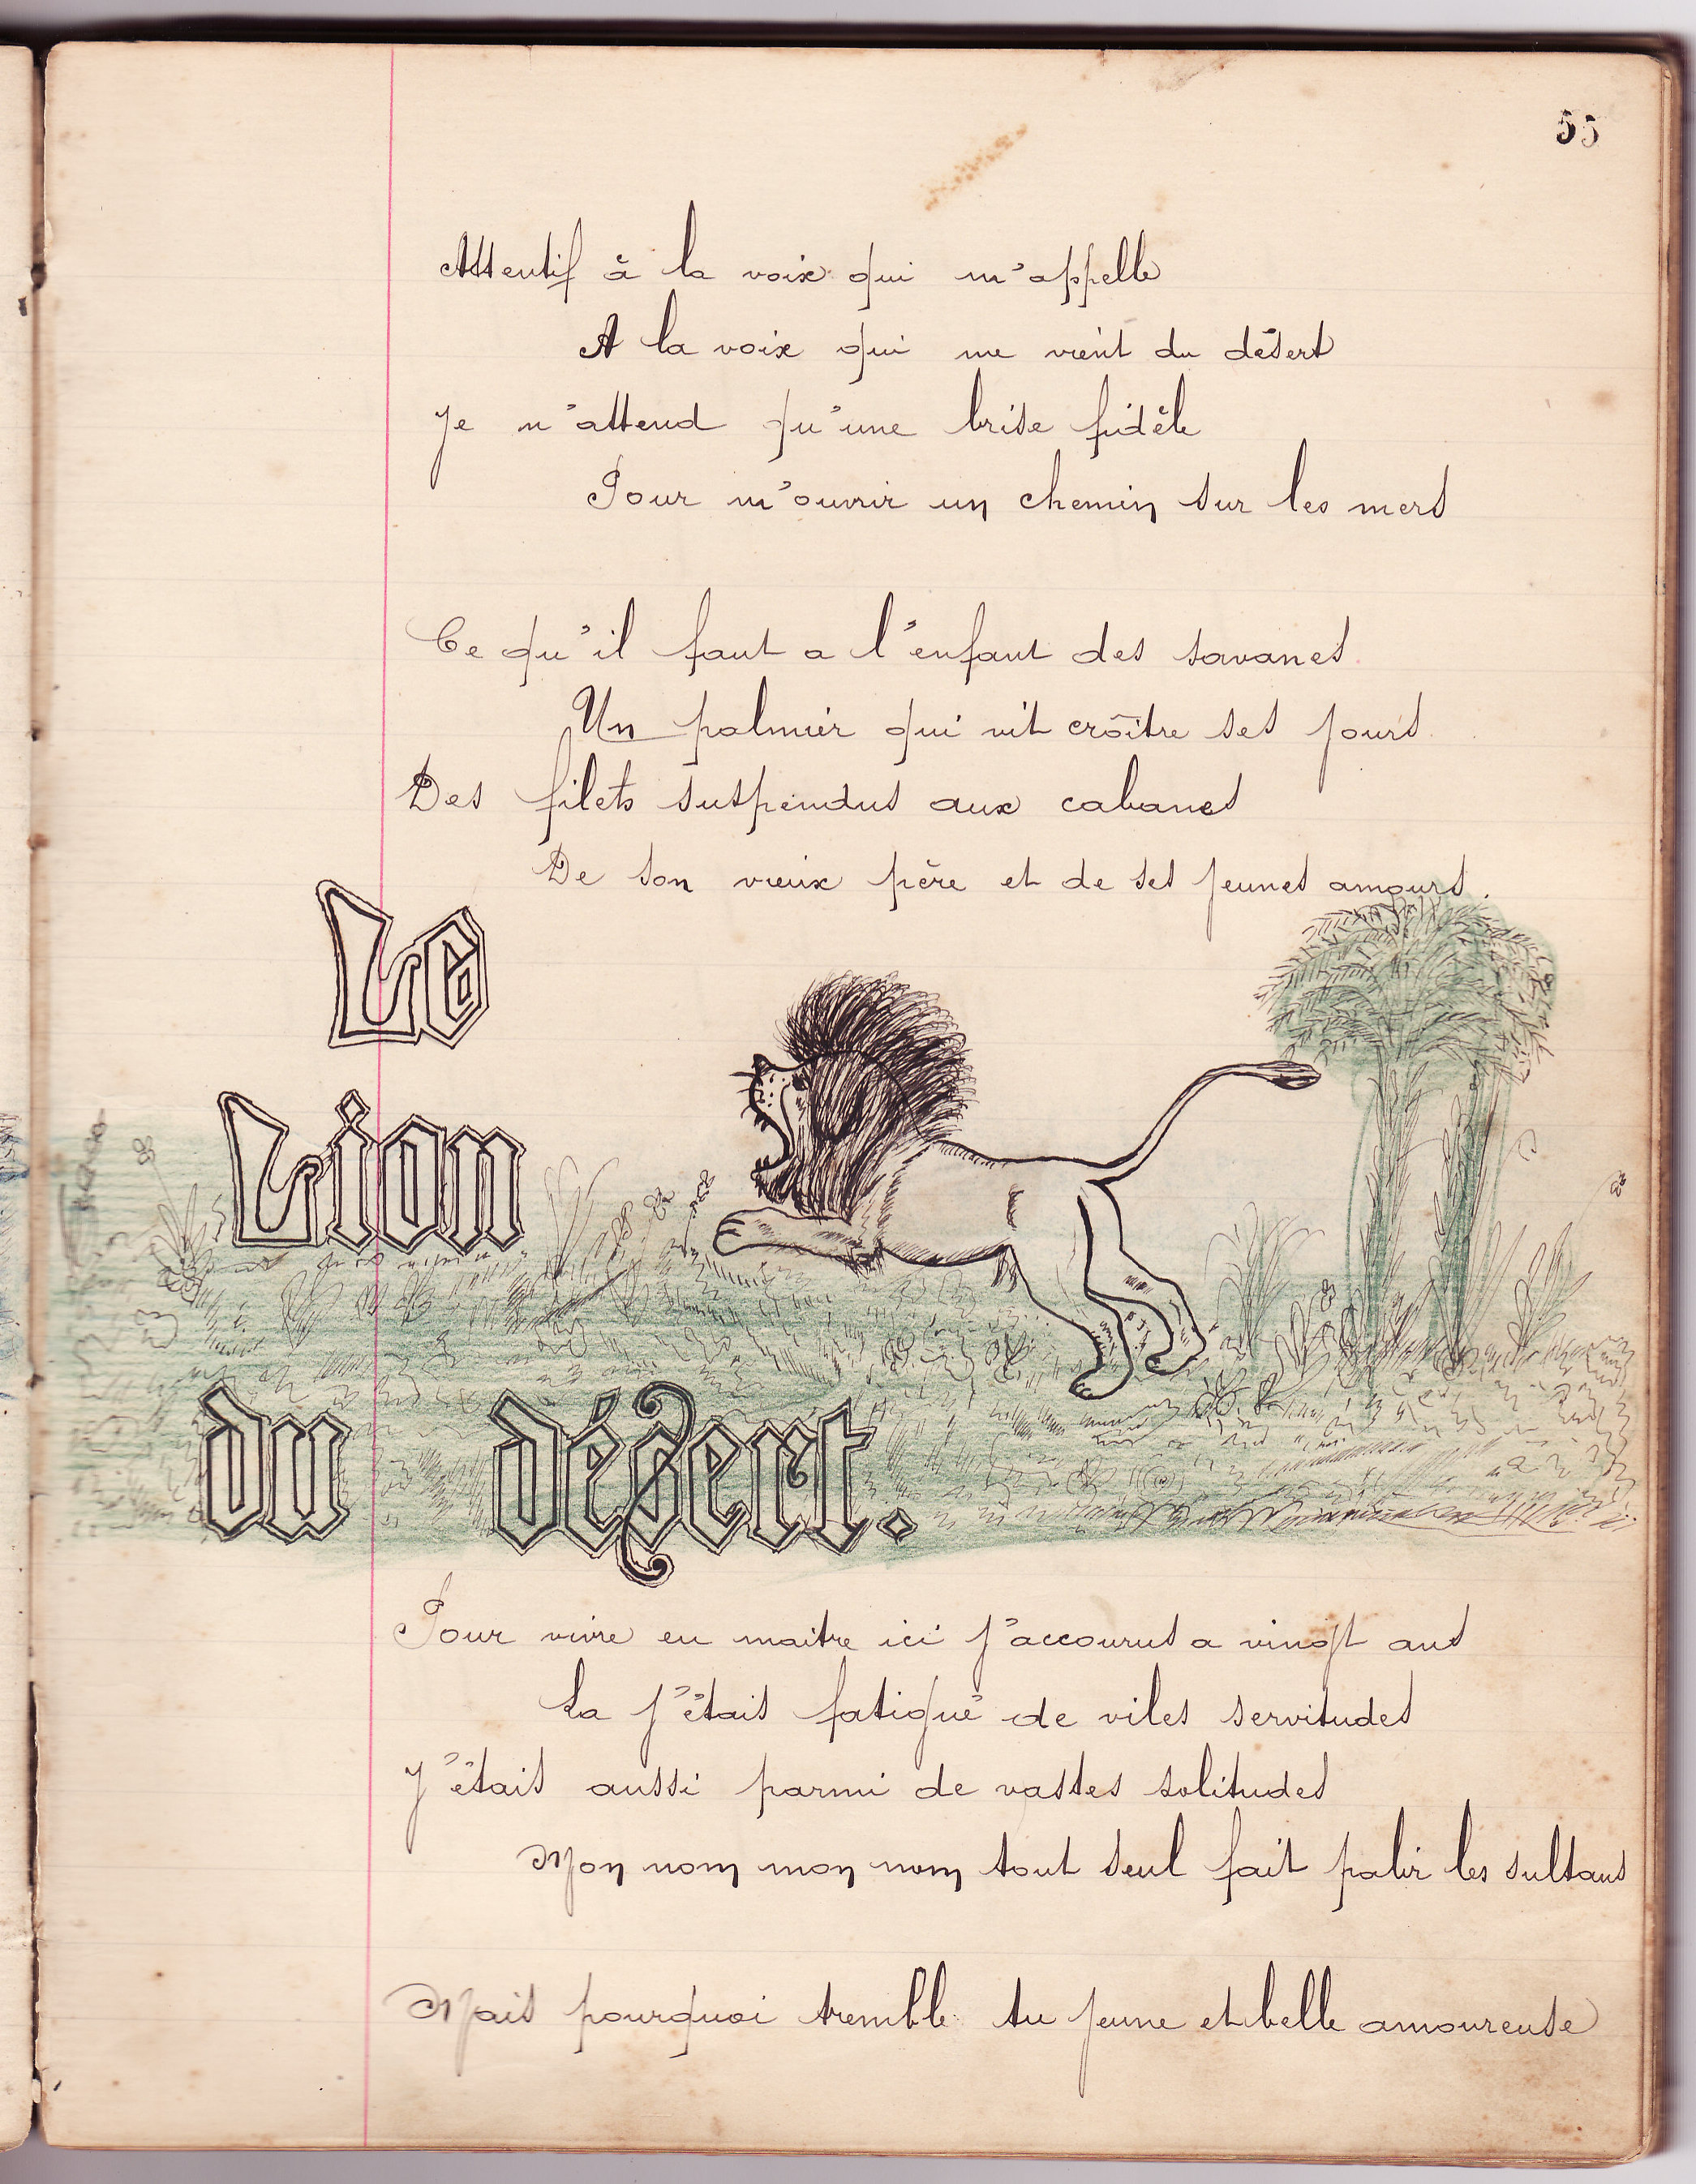 55
Attentif à la voix qui m'appelle
A la voix qui me vient du désert
Je n'attend qu'une brise fidèle
Pour m'ouvrir un chemin sur les mers
Ce qu'il faut a l'enfant des savanes
Un palmier qui vit croître ses jours
Des filets suspendus aux cabanes
De son vieux père et de ses jeunes amours.
Le
Lion
du désert.
Pour vivre en maitre ici j'accourus a vingt ans
La j'étais fatigué de viles servitudes
J'étais aussi parmi de vastes solitudes
Mon nom mon nom tout seul fait palir les sultans
Mais pourquoi tremble tu jeune et belle amoureuse